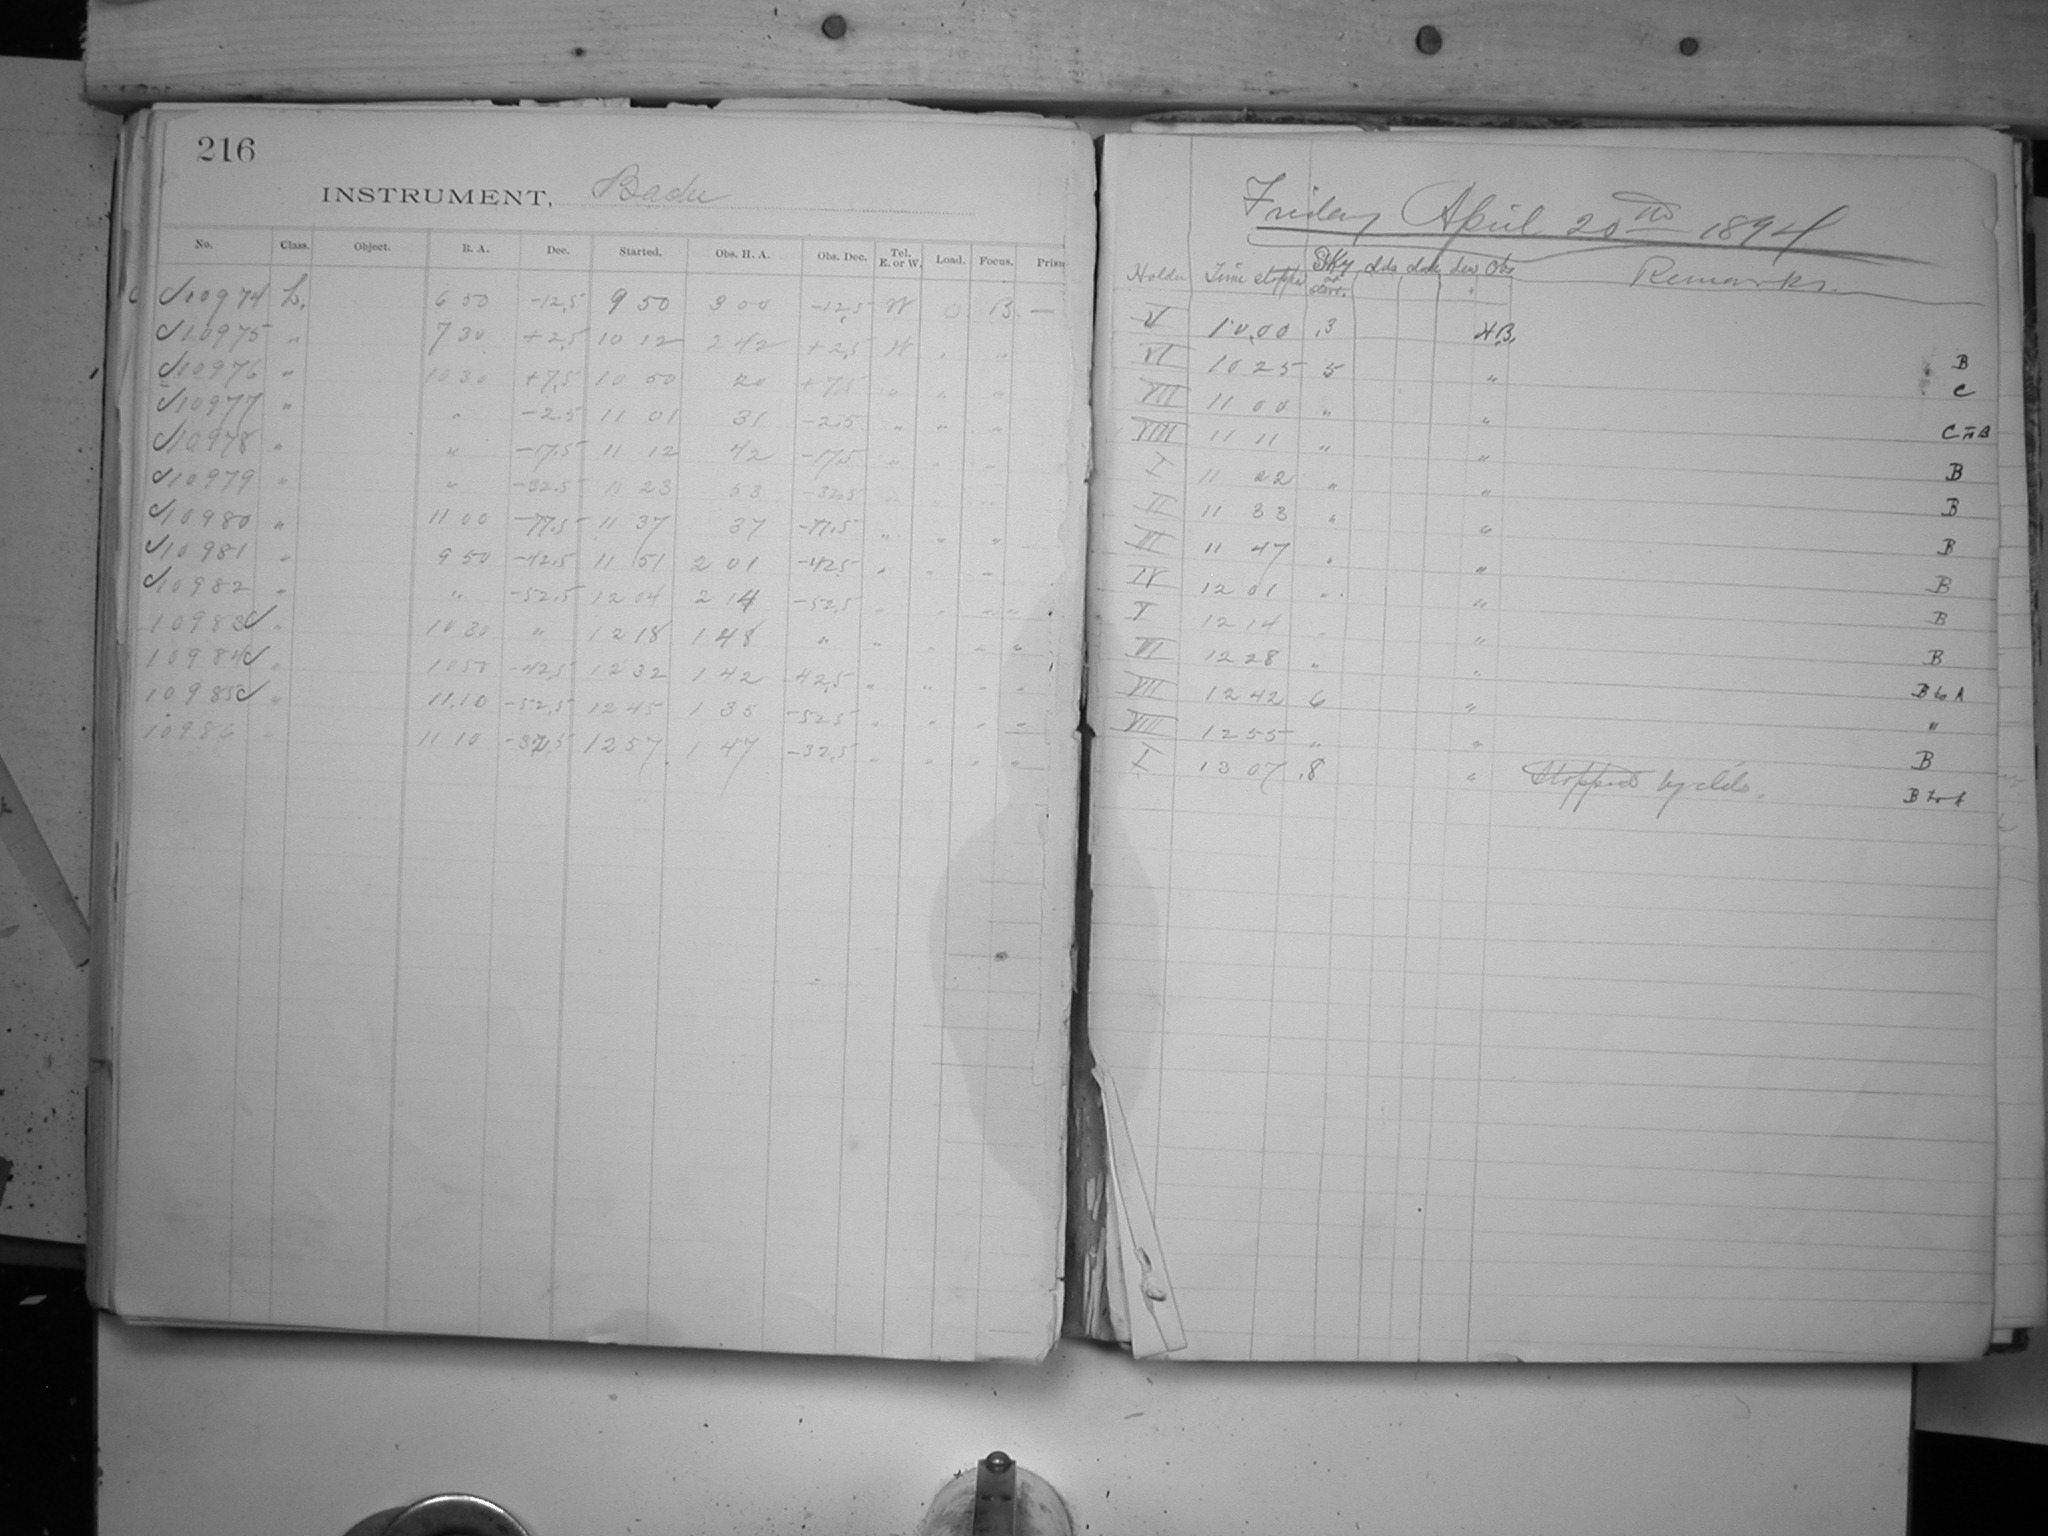 216
INSTRUMENT, Bache
No. Class. Object. R. A. Dec. Started. Obs. H. A. Obs. Dec. Tel. E. or W. Load. Focus. Prism
10974 L. 6 50 -12,5 9 50 3 00 -12,5 W 0. B. —
10975 " 7 30 +2,5 10 12 2 42 +2,5 W . "
10976 " 10 30 +7,5 10 50 20 +7,5 " " "
10977 " " -2.5 11 01 31 -2.5 " " "
10978 " " -17.5 11 12 42 -17,5 " " "
10979 " " -32.5 11 23 53 -32.5 " " "
10980 " 11 00 -77,5 11 37 37 -77,5 " " "
10981 " 9 50 -42,5 11 51 2 01 -42,5 " " "
10982 " " -52,5 12 04 2 14 -52,5 " " " "
10983 " 10 30 " 12 18 1 48 " " " " "
10984 " 10 50 -42,5 12 32 1 42 -42,5 " " " "
10985 " 11.10 -52,5 12 45 1 35 -52,5 " " " "
10986 " 11 10 -32,5 12 57 1 47 -32,5 " " " "
Friday April 20th 1894
Holder Time stopped Sky or scorr. dew Obs Remarks.
V 10,00 .3 H.B.
VI 10 25 5 " B
VII 11 00 " " C
VIII 11 11 " " C to B
I 11 22 " " B
II 11 33 " " B
III 11 47 " " B
IV 12 01 " " B
V 12 14 " " B
VI 12 28 " " B
VII 12 42 6 " B to A
VIII 12 55 " " "
I 13 07 .8 " Stopped by clds. B
B to A